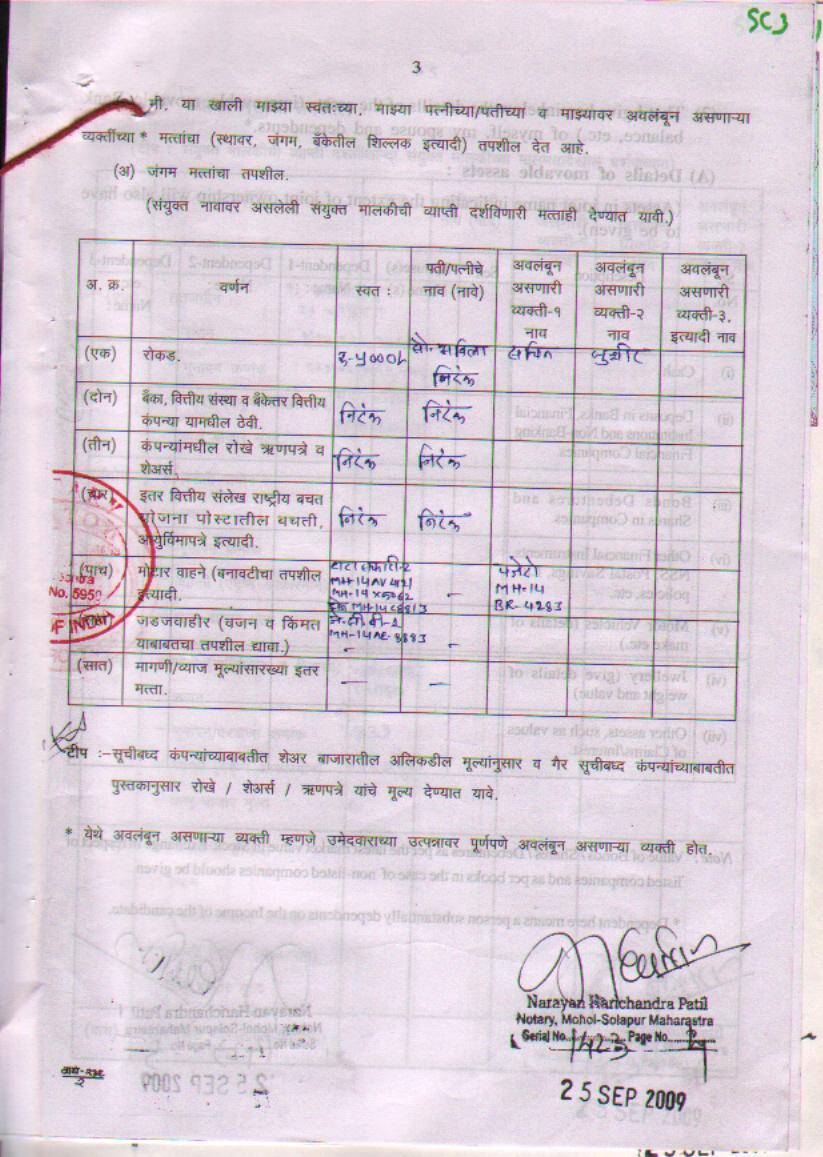 SC3
3
मी. या खाली माझ्या स्वतःच्या, माझ्या पत्नीच्या/पतीच्या व माझ्यावर अवलंबून असणाऱ्या
व्यक्तींच्या * मत्तांचा (स्थावर, जंगम, बँकेतील शिल्लक इत्यादी) तपशील देत आहे.
(अ) जंगम मत्तांचा तपशील.
(संयुक्त नावावर असलेली संयुक्त मालकीची व्याप्ती दर्शविणारी मत्ताही देण्यात यावी.)
अ. क्र. वर्णन स्वत : पती/पत्नीचे नाव (नावे) अवलंबून असणारी व्यक्ती-१ नाव अवलंबून असणारी व्यक्ती-२ नाव अवलंबून असणारी व्यक्ती-३. इत्यादी नाव
(एक) रोकड. रु-५०००/- निरंक
(दोन) बँका, वित्तीय संस्था व बँकेतर वित्तीय कंपन्या यामधील ठेवी. निरंक निरंक
(तीन) कंपन्यांमधील रोखे ऋणपत्रे व शेअर्स. निरंक निरंक
(चार) इतर वित्तीय संलेख राष्ट्रीय बचत योजना पोस्टातील बचती, आयुर्विमापत्रे इत्यादी. निरंक निरंक
(पाच) मोटार वाहने (बनावटीचा तपशील इत्यादी. MH-14 - पजेरो MH-14 BR-4283
जडजवाहीर (वजन व किंमत याबाबतचा तपशील द्यावा.) - -
(सात) मागणी/व्याज मूल्यांसारख्या इतर मत्ता. — —
No. 5950
OF INDIA
टीप :–सूचीबध्द कंपन्यांच्याबाबतीत शेअर बाजारातील अलिकडील मूल्यांनुसार व गैर सूचीबध्द कंपन्यांच्याबाबतीत
पुस्तकानुसार रोखे / शेअर्स / ऋणपत्रे यांचे मूल्य देण्यात यावे.
* येथे अवलंबून असणाऱ्या व्यक्ती म्हणजे उमेदवाराच्या उत्पन्नावर पूर्णपणे अवलंबून असणाऱ्या व्यक्ती होत.
Narayan Harichandra Patil
Notary, Mohol-Solapur Maharastra
Serial No. Page No.
25 SEP 2009